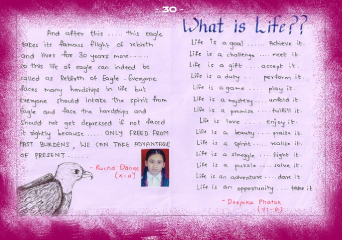 - 30 -
And after this ..... this eagle
takes its famous flight of rebirth
and lives for 30 years more.....
so this life of eagle can indeed be
called as Rebirth of Eagle - Everyone
faces many hardships in life but
Everyone should intake the spirit from
Eagle and face the hardships and
should not get depressed if not faced
it rightly because .... ONLY FREED FROM
PAST BURDENS, WE CAN TAKE ADVANTAGE
OF PRESENT
- Ruina Dange
What is Life??
Life is a goal ..... achieve it.
Life is a challenge ... meet it.
Life is a gift .... accept it.
Life is a duty .... perform it.
Life is a game .... play it.
Life is a mystery .... unfold it.
Life is a promise .... fulfill it.
Life is love .... enjoy it.
Life is a beauty .... praise it.
Life is a spirit .... realise it.
Life is a struggle .... fight it.
Life is a puzzle .... solve it.
Life is an adventure .... dare it.
Life is an opportunity .... take it.
- Deepika Phatak